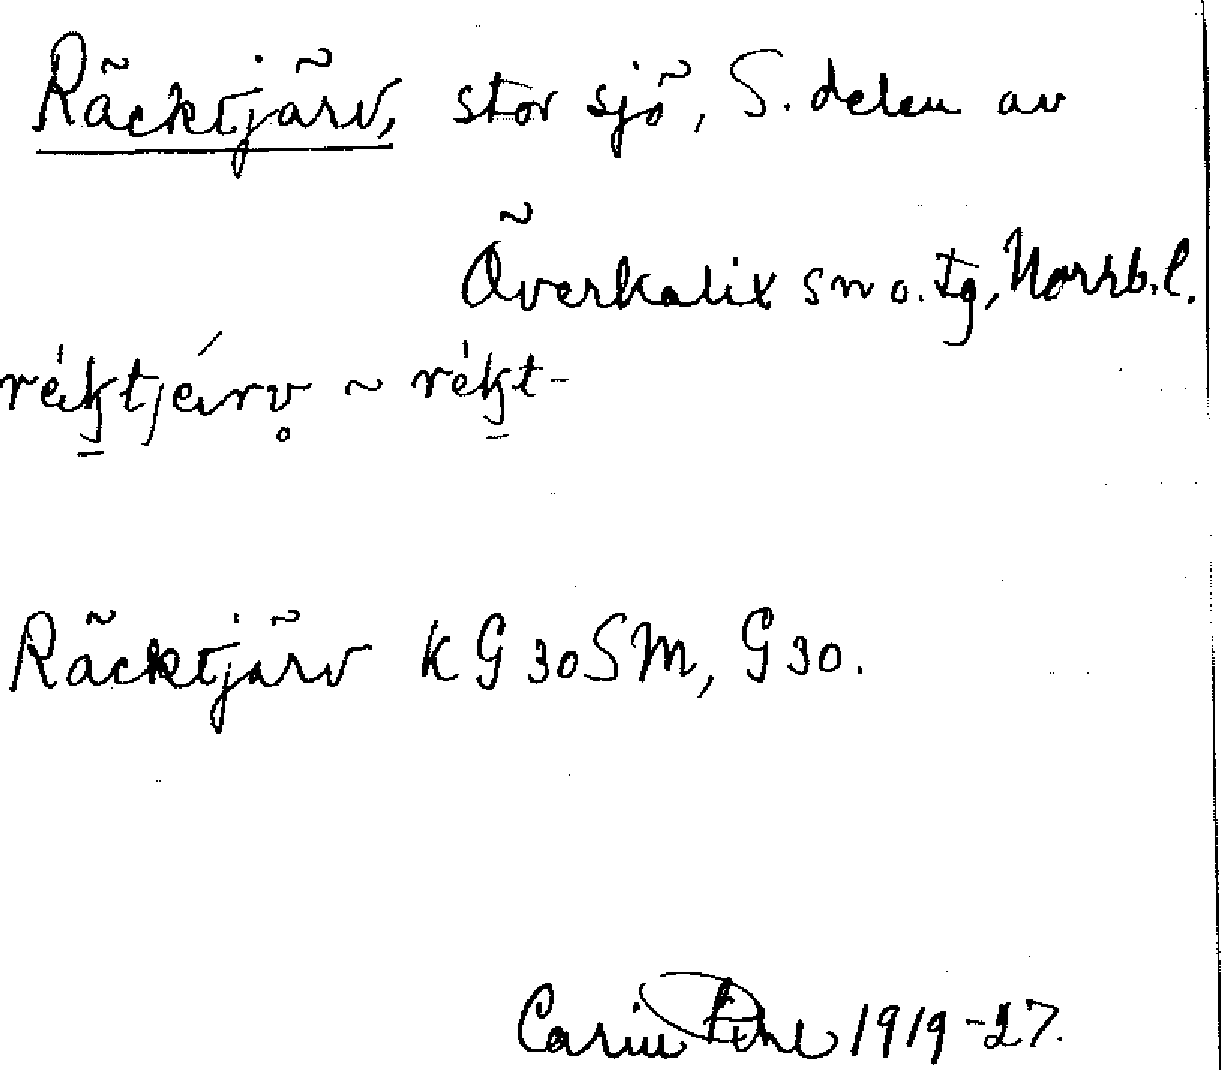 Räcktjärv, stor sjö, S. delen av
Överkalix sn o. tg, Norrb. l.
réktjérv ~ rékt-
Räcktjärv KG30SM, G30.
Carin Pihl 1919-27.